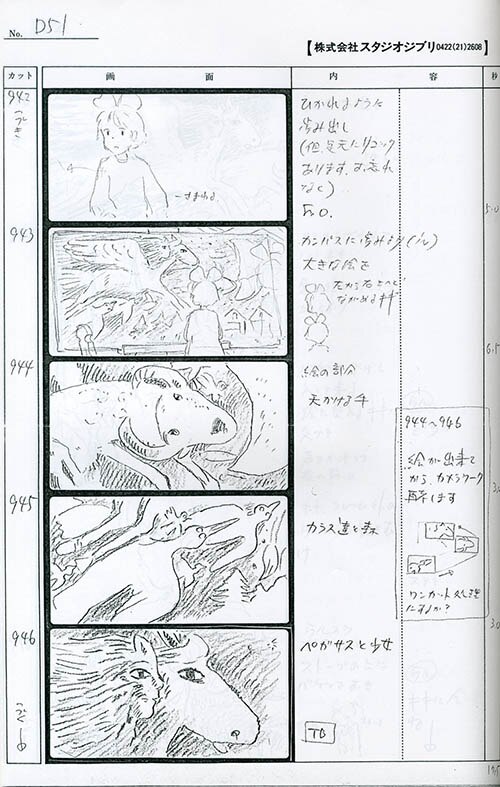 No. D51
【株式会社スタジオジブリ0422(21)2608】
カット 画面 内容 秒
942
つづき
ひかれるように
歩み出し
(但、足元にリュック
あります、お忘れ
なく)
F.O.
5.0
943
カンバスに歩みより
大きな絵を
ながめるキキ
6.5
944
絵の部分
天かける牛
944〜946
絵が出来て
から、カメラワーク
再考します
ワンカット処理
にするか?
945
カラス達と森
3.0
946
ペガサスと少女
つづく
TB